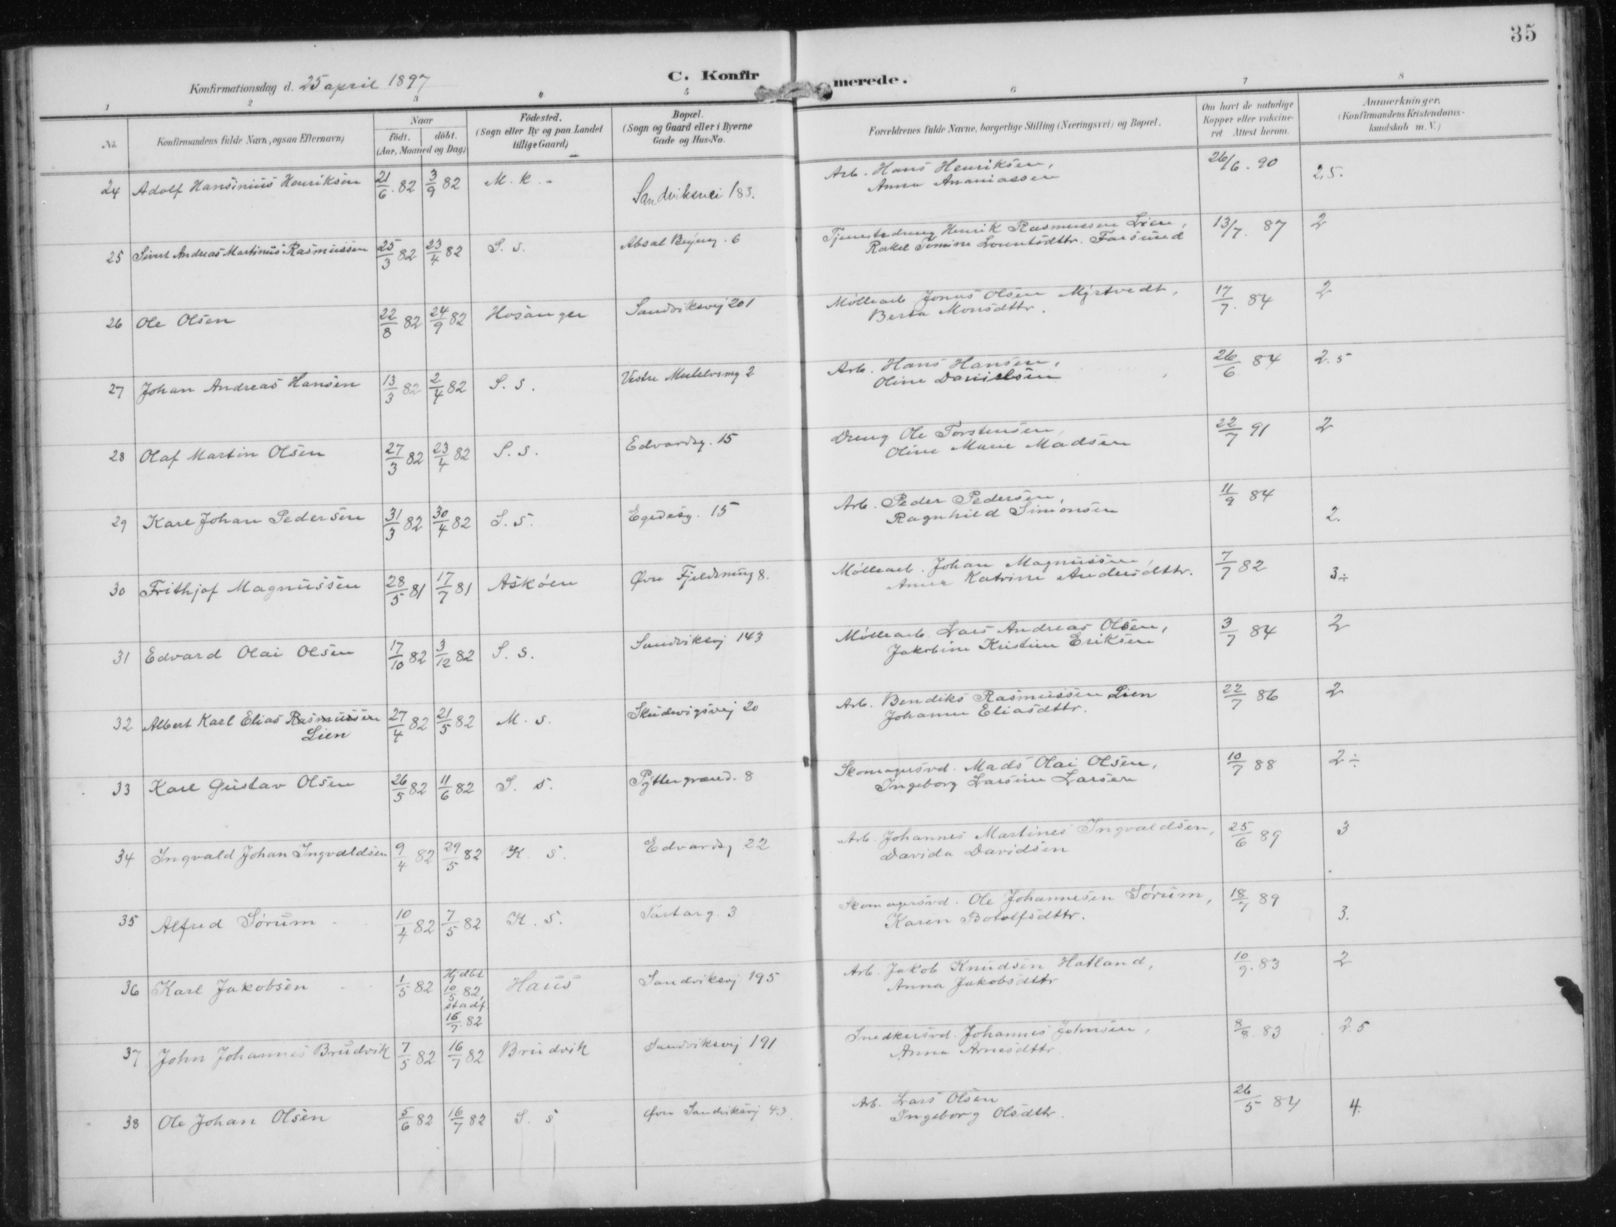 35
Konfirmationsdag d. 25 april 1897
C. Konfirmerede.
1 2 3 4 5 6 7 8
No. Konfirmandens fulde Navn, ogsaa Efternavn) Naar Født. døbt. (Aar, Maaned og Dag) Fødested. (Sogn eller By og paa Landet tillige Gaard) Bopæl. (Sogn og Gaard eller i Byerne Gade og Hus-No. Forældrenes fulde Navne, borgerlige Stilling (Næringsvei) og Bopæl. Om havt de naturlige Kopper eller vaccineret Attest herom. Anmerkninger. (Konfirmandens Kristendomskundskab m. V.)
24 Adolf Hansinius Henriksen 21/6 82 3/9 82 M. k. Sandviksvei 183. Arb. Hans Henriksen, 26/6. 90 2,5.
Anna Ananiassen
25 Sivert Andreas Martinus Rasmussen 25/3 82 23/4 82 S. s. Absal Beyerg. 6 Tjenestedreng Henrik Rasmussen Lien, 13/7. 87 2
Rakel Tomine Lorentsdttr. Farsund
26 Ole Olsen 22/8 82 24/9 82 Hosanger Sandviksvej 201 Møllearb. Jonas Olsen Mjøtvedt, 17/7. 84 2
Berta Monsdttr.
27 Johan Andreas Hansen 13/3 82 2/4 82 S. s. Vestre 2 Arb. Hans Hansen, 26/6 84 2.5
Oline Danielsen
28 Olaf Martin Olsen 27/3 82 23/4 82 S. s. Edvardsg. 15 Dreng Ole Torstensen, 22/7 91 2
Oline Marie Madsen
29 Karl Johan Pedersen 31/3 82 30/4 82 S. s. Egedesg. 15 Arb. Peder Pedersen, 11/9 84 2.
Ragnhild Simonsen
30 Frithjof Magnussen 28/5 81 17/7 81 Askøen Øvre Fjeldsmug 8. Møllearb. Johan Magnussen, 7/7 82 3÷
Anna Katrine Andersdttr.
31 Edvard Olai Olsen 17/10 82 3/12 82 S. s. Sandviksvj 143 Møllearb. Lars Andreas Olsen, 3/7 84 2
Jakobine Kristine Eriksen
32 Albert Karl Elias Rasmussen 27/4 82 21/5 82 M. s. Skudevigsvej 20 Arb. Bendiks Rasmussen Lien 22/7 86 2
Lien Johanne Eliasdttr.
33 Karl Gustav Olsen 26/5 82 11/6 82 S. s. Pyttergrænd. 8 Skomagersvd. Mads Olai Olsen, 10/7 88 2÷
Ingeborg Larsine Larsen
34 Ingvald Johan Ingvaldsen 9/4 82 29/5 82 K. s. Edvardsg 22 Arb. Johannes Martines Ingvaldsen, 25/6 89 3
Davida Davidsen
35 Alfred Sørum 10/4 82 7/5 82 K. s. Tartarg. 3 Skomagersvd. Ole Johannesen Sørum, 18/7 89 3.
Karen Botolfsdttr.
36 Karl Jakobsen 1/5 82 Hjdbt 10/5 82 stadf 16/7 82 Haus Sandviksvj 195 Arb. Jakob Knudsen Hatland, 10/9. 83 2
Anna Jakobsdttr
37 John Johannes Brudvik 7/5 82 16/7 82 Brudvik Sandviksvej 191 Snedkersvd. Johannes Johnsen, 8/8. 83 2 5
Anna Arnesdttr.
38 Ole Johan Olsen 5/6 82 16/7 82 S. s Øvre Sandviksvj 43. Arb. Lars Olsen 26/5 84 4.
Ingeborg Olsdttr.